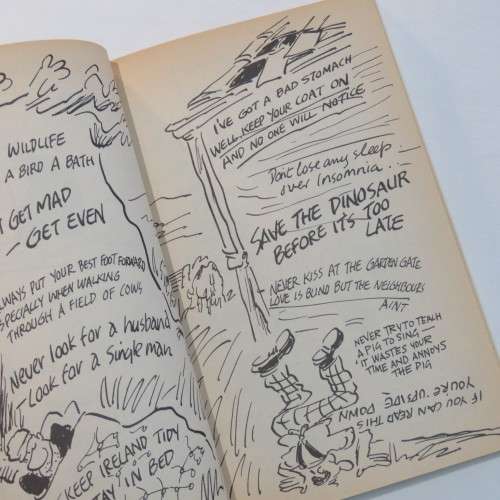 WILDLIFE
A BIRD A BATH
GET MAD
— GET EVEN
ALWAYS PUT YOUR BEST FOOT FORWARD
ESPECIALLY WHEN WALKING
THROUGH A FIELD OF COWS
Never look for a husband
— Look for a single man
KEEP IRELAND TIDY
STAY IN BED
I'VE GOT A BAD STOMACH
WELL, KEEP YOUR COAT ON
AND NO ONE WILL NOTICE
Don't lose any sleep
over Insomnia..
SAVE THE DINOSAUR
BEFORE IT'S TOO
LATE
NEVER KISS AT THE GARDEN GATE
LOVE IS BLIND BUT THE NEIGHBOURS
AIN'T
NEVER TRY TO TEACH
A PIG TO SING —
IT WASTES YOUR
TIME AND ANNOYS
THE PIG
IF YOU CAN READ THIS
YOU'RE UPSIDE
DOWN